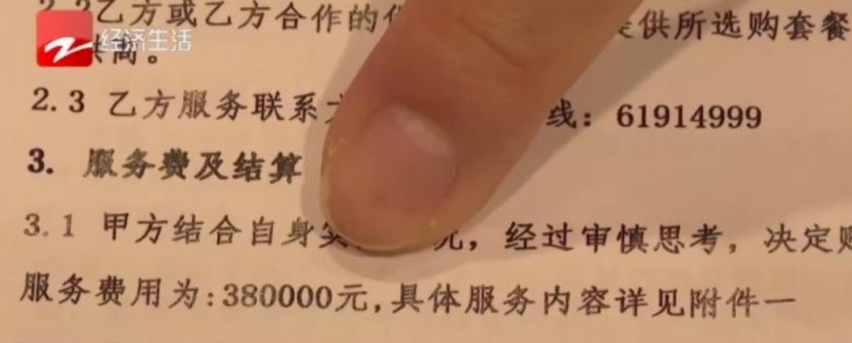 2.2乙方或乙方合作的 提供所选购套餐
经济生活
供商。
2.3 乙方服务联系 线：61914999
3. 服务费及结算
3.1 甲方结合自身 ，经过审慎思考，决定
服务费用为:380000元,具体服务内容详见附件一